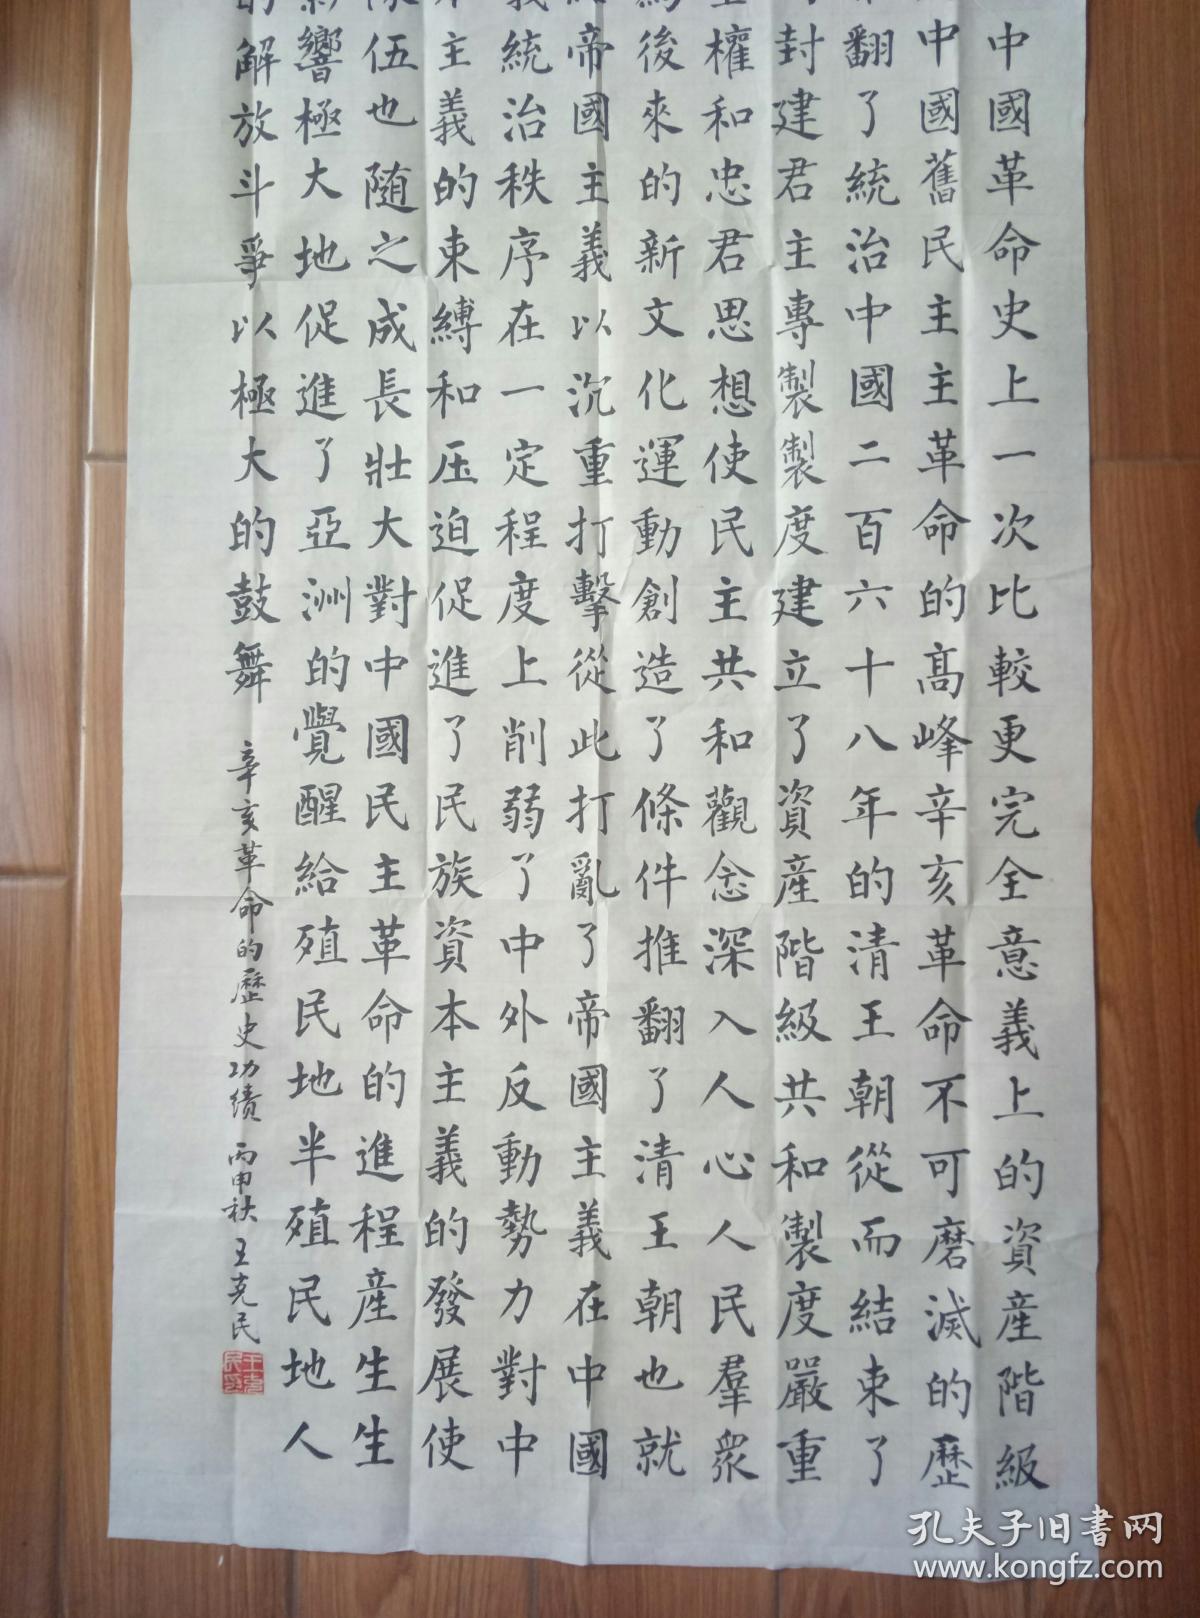 中國革命史上一次比較更完全意義上的資産階級
中國舊民主主革命的高峰辛亥革命不可磨滅的歷
翻了統治中國二百六十八年的清王朝從而結束了
封建君主專製製度建立了資産階級共和製度嚴重
權和忠君思想使民主共和觀念深入人心人民羣衆
後來的新文化運動創造了條件推翻了清王朝也就
帝國主義以沉重打擊從此打亂了帝國主義在中國
統治秩序在一定程度上削弱了中外反動勢力對中
主義的束縛和压迫促進了民族資本主義的發展使
伍也随之成長壯大對中國民主革命的進程産生生
響極大地促進了亞洲的覺醒給殖民地半殖民地人
的解放斗爭以極大的鼓舞
辛亥革命的歷史功績 丙申秋 王克民
王克民印
孔夫子旧书网
www.kongfz.com